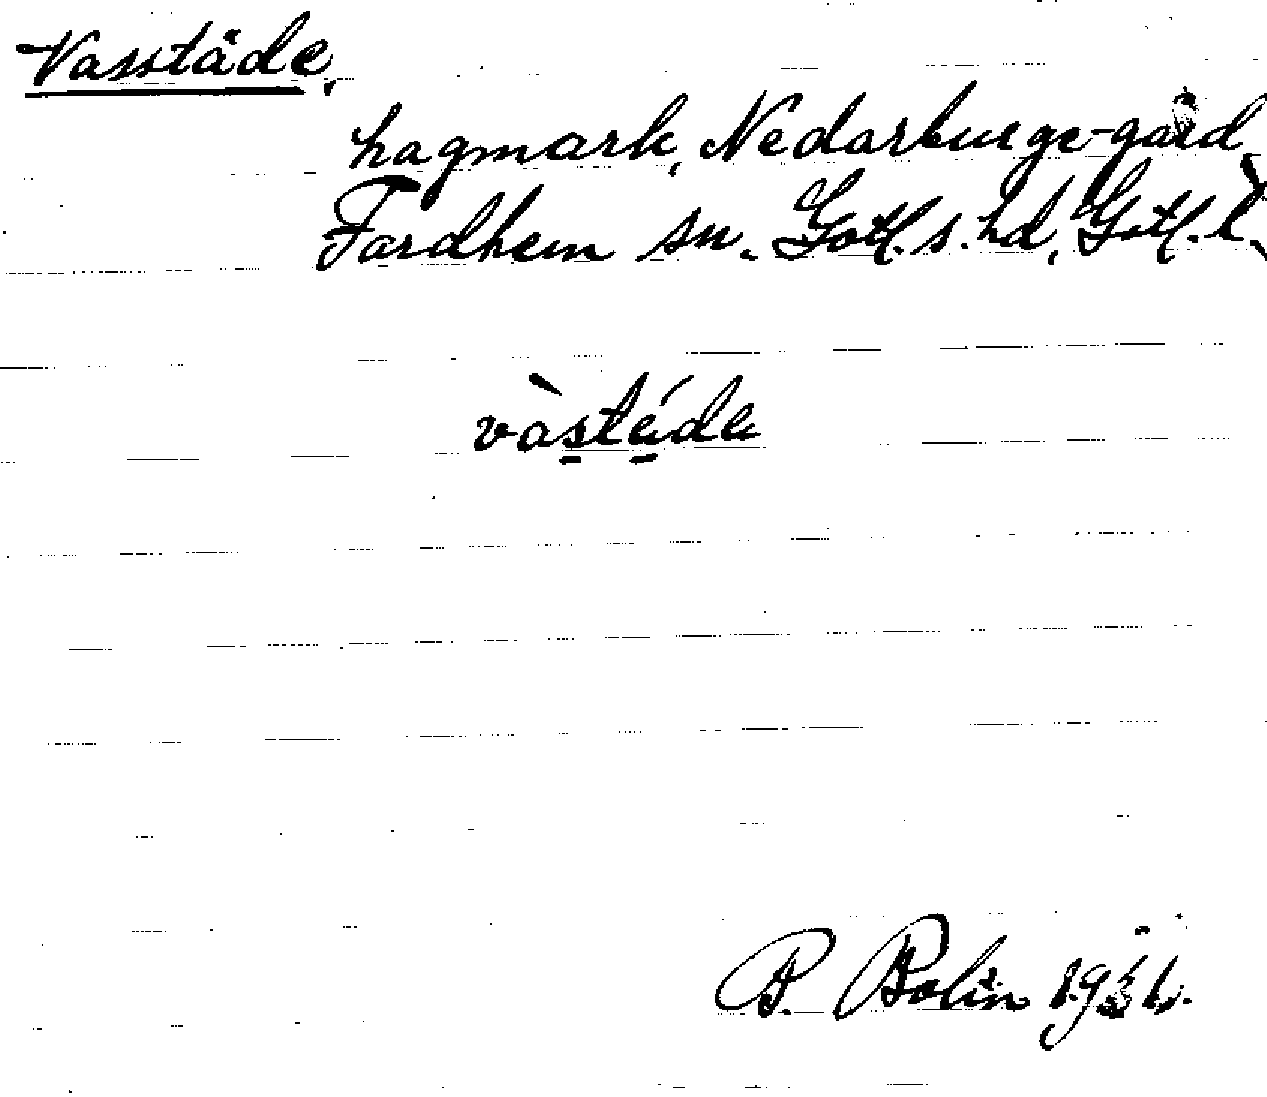 Vasstäde,
hagmark, Nedarburge-gård,
Fardhem sn. Gotl. s. hd, Gotl. l.
vàstéde
P. Bolin 1931.